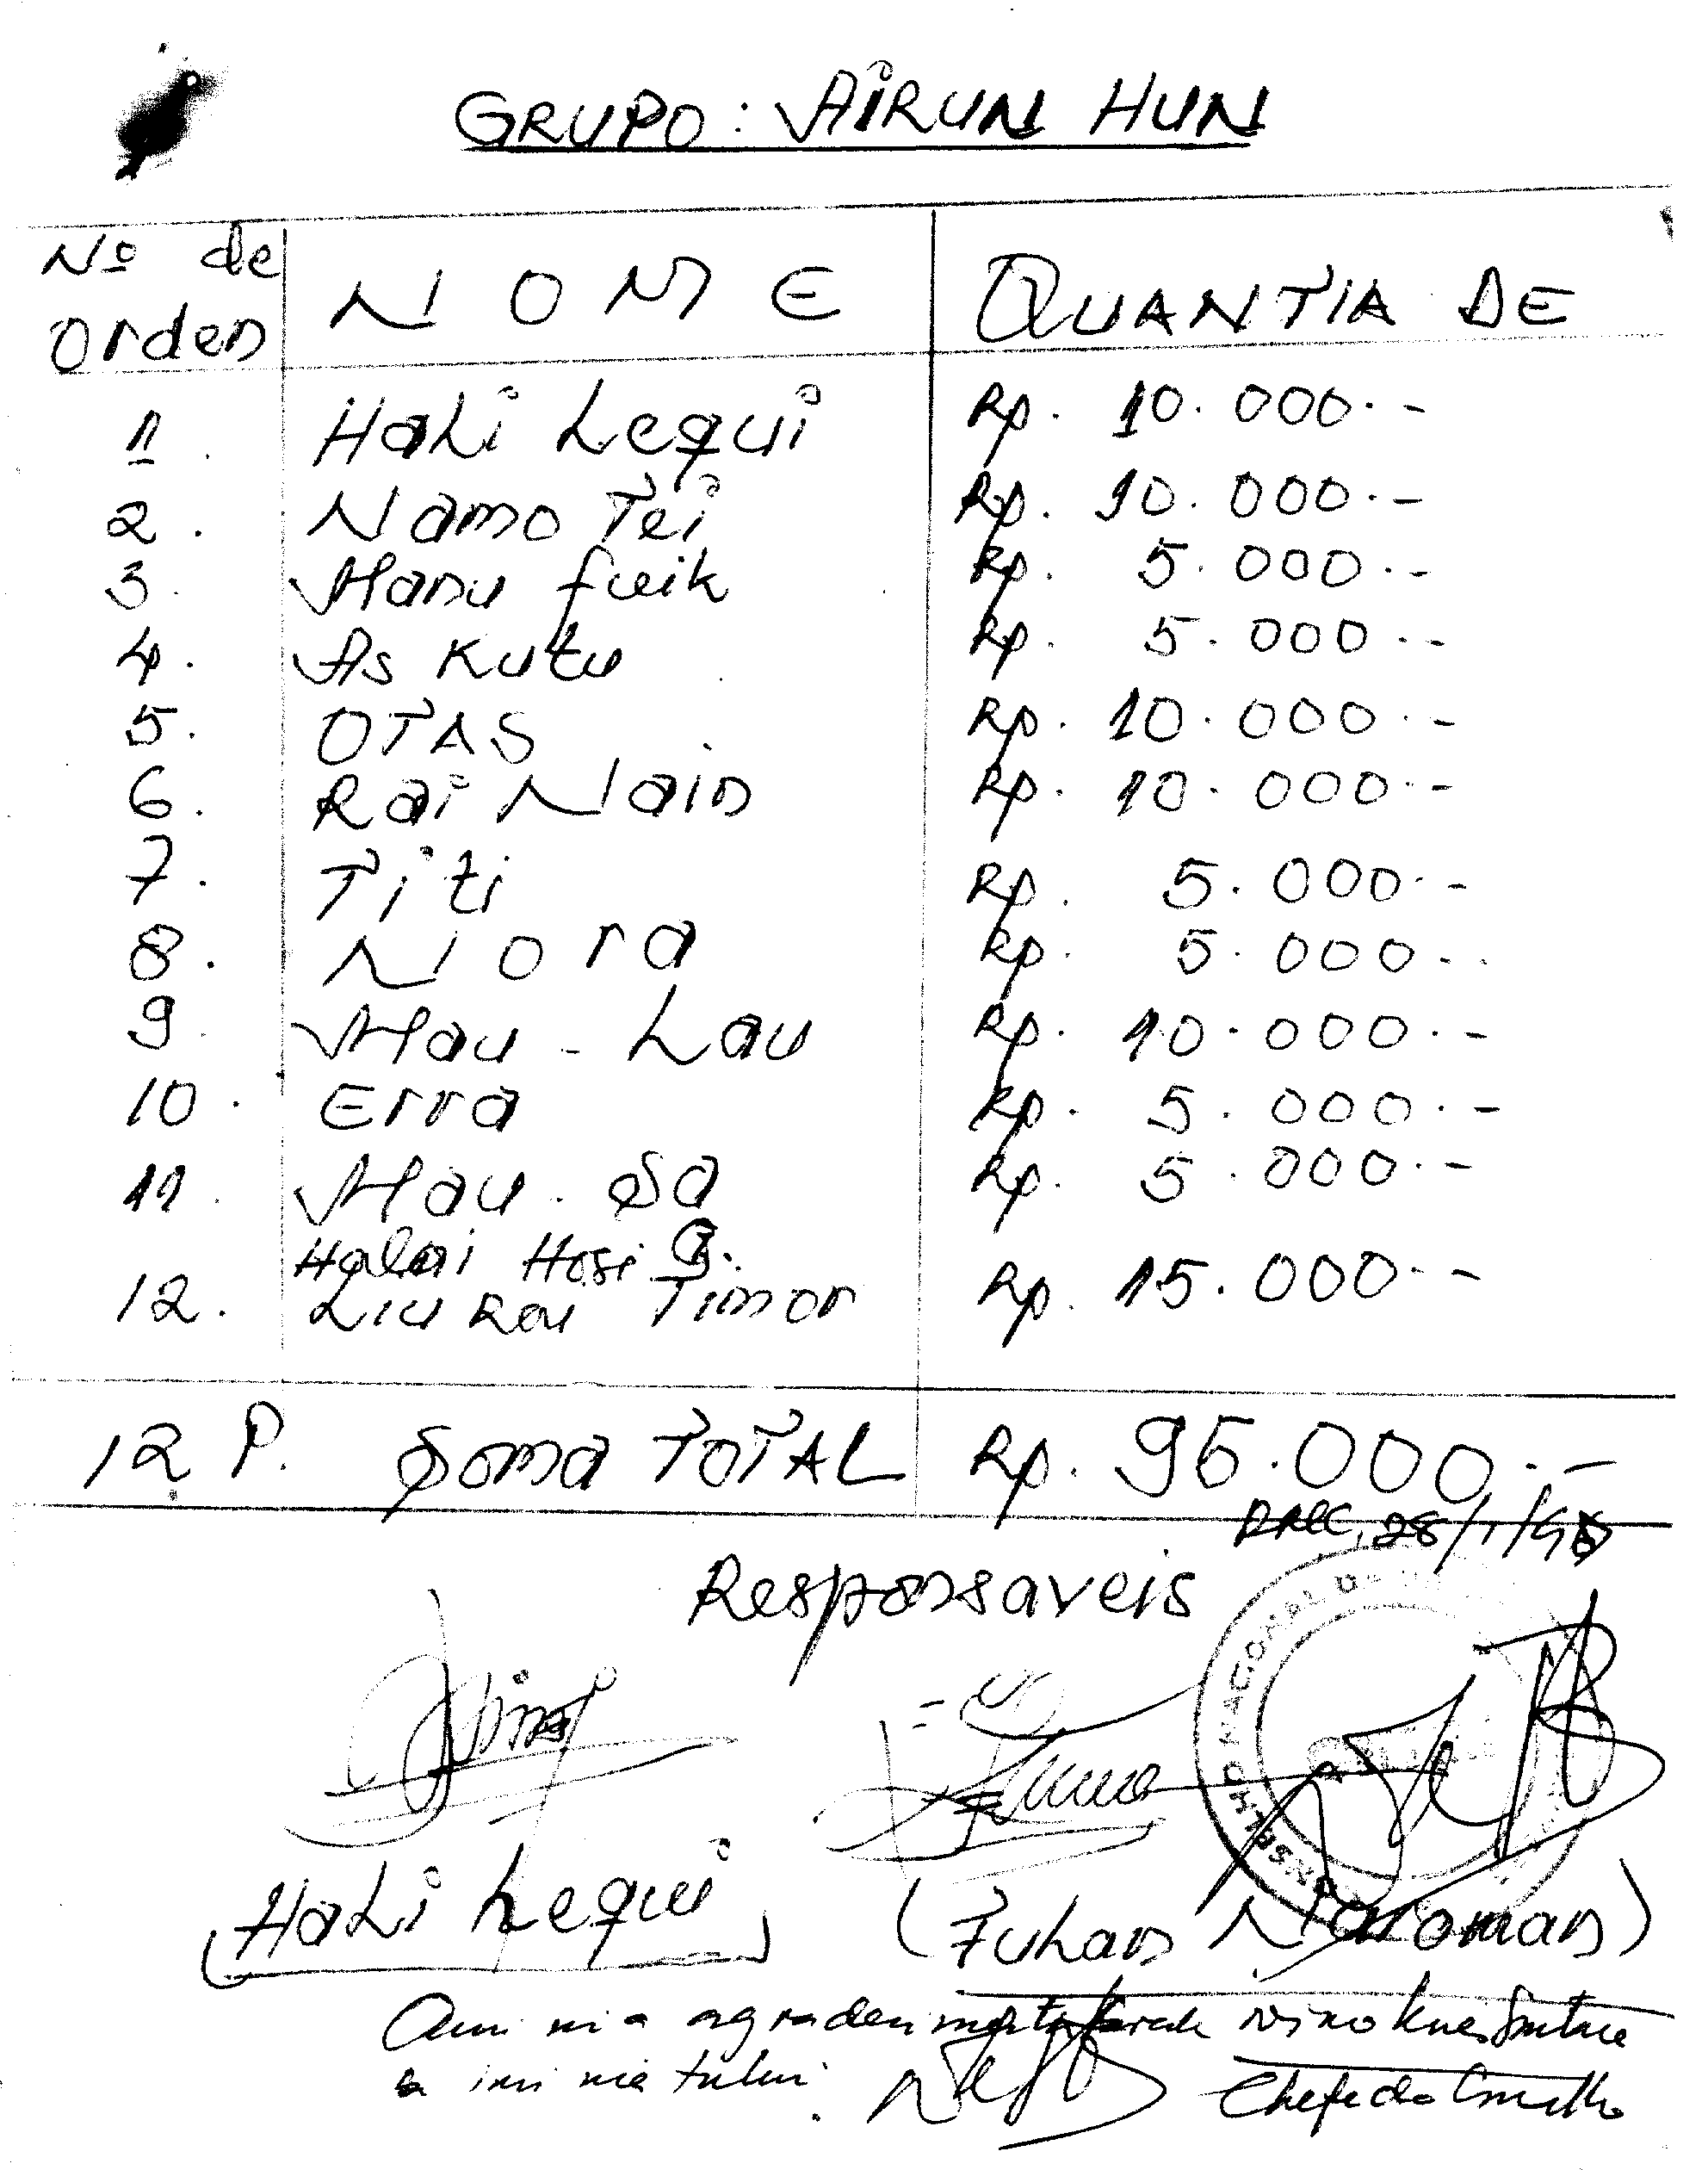 GRUPO: AIRUN HUN
Nº de Orden
NOME
QUANTIA DE
1. Hali Lequi Rp. 10.000.-
2. Namo Tei Rp. 10.000.-
3. Manu fuik Rp. 5.000.-
4. As Kutu Rp. 5.000.-
5. OTAS Rp. 10.000.-
6. Rai Nain Rp. 10.000.-
7. Titi Rp. 5.000.-
8. Nora Rp. 5.000.-
9. Mau-Lau Rp. 10.000.-
10. Erra Rp. 5.000.-
11. Mau-Sa Rp. 5.000.-
12. Halai Hosi
Liu Rai Timor Rp. 15.000.-
12 P. Soma TOTAL Rp. 95.000.-
28/1/98
Responsaveis
Hali Lequi
(Fuhan Naroman)
Ami nia
imi nia tulun.
Chefe do